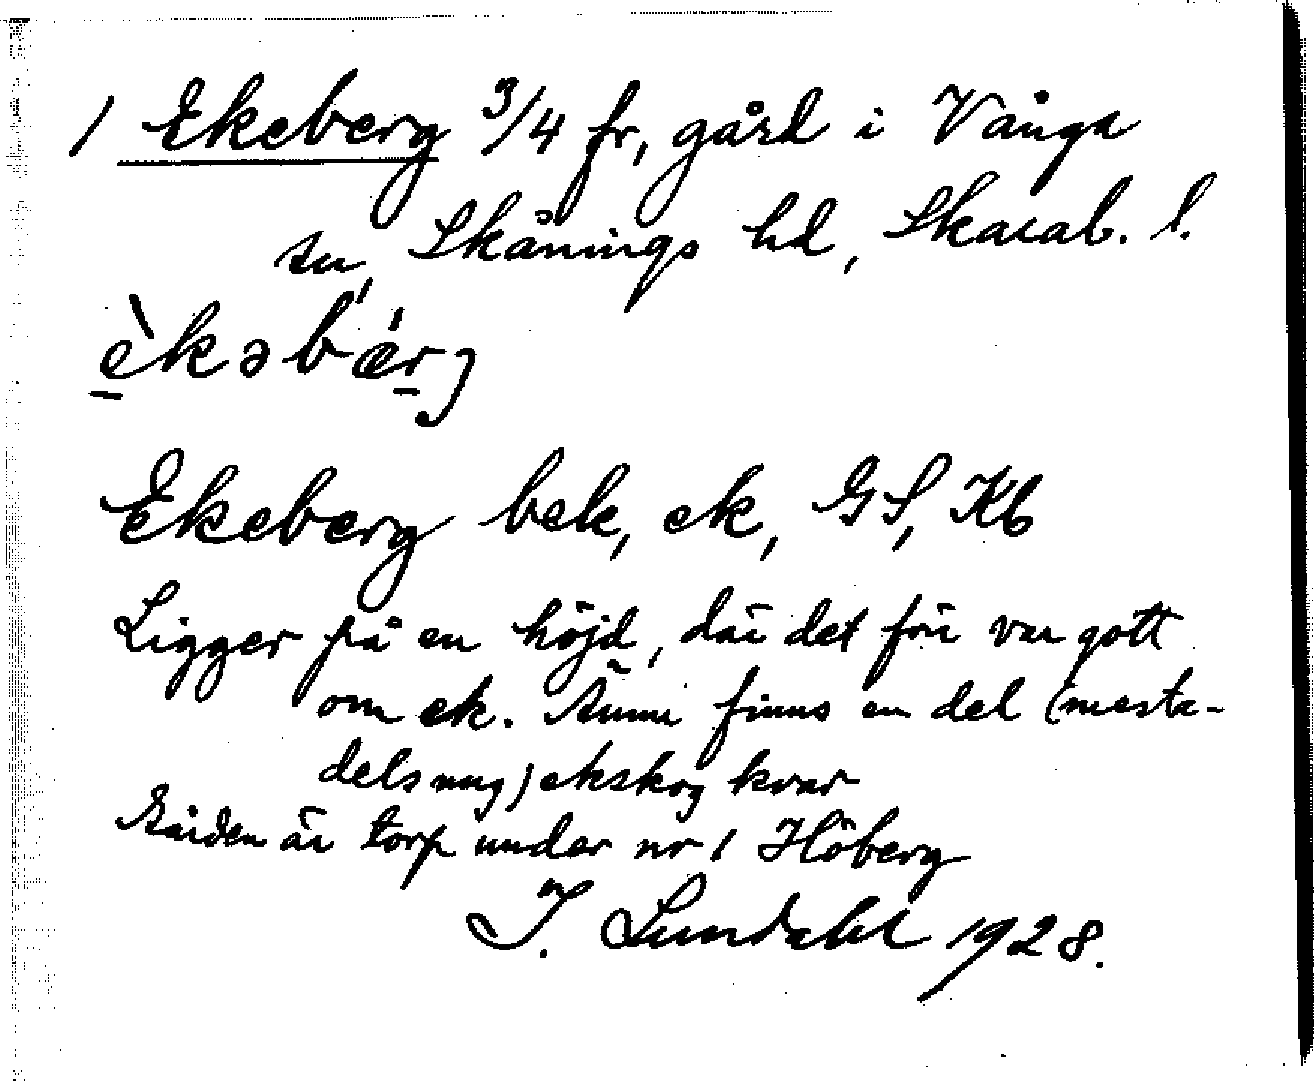 1 Ekeberg 3/4 fr, gård i Vånga
sn, Skånings hd, Skarab. l.
èkəbǽrj
Ekeberg bek, ek, GS, Kb
Ligger på en höjd, där det förr var gott
om ek. Ännu finns en del (mesta-
dels ung) ekskog kvar
Gården är torp under nr 1 Höberg
I. Lundahl 1928.